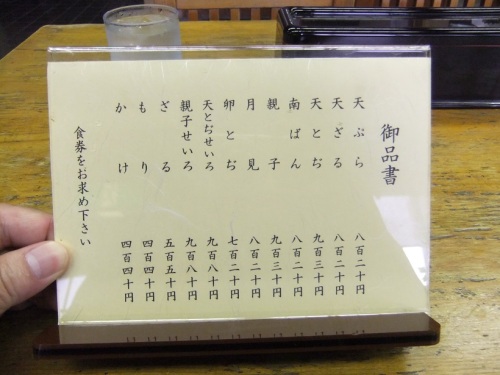 御品書
天ぷら 八百二十円
天ざる 八百二十円
天とぢ 九百三十円
南ばん 八百二十円
親子 九百三十円
月見 八百二十円
卵とぢ 七百二十円
天とぢせいろ 九百八十円
親子せいろ 九百八十円
ざる 五百五十円
もり 四百四十円
かけ 四百四十円
食券をお求め下さい